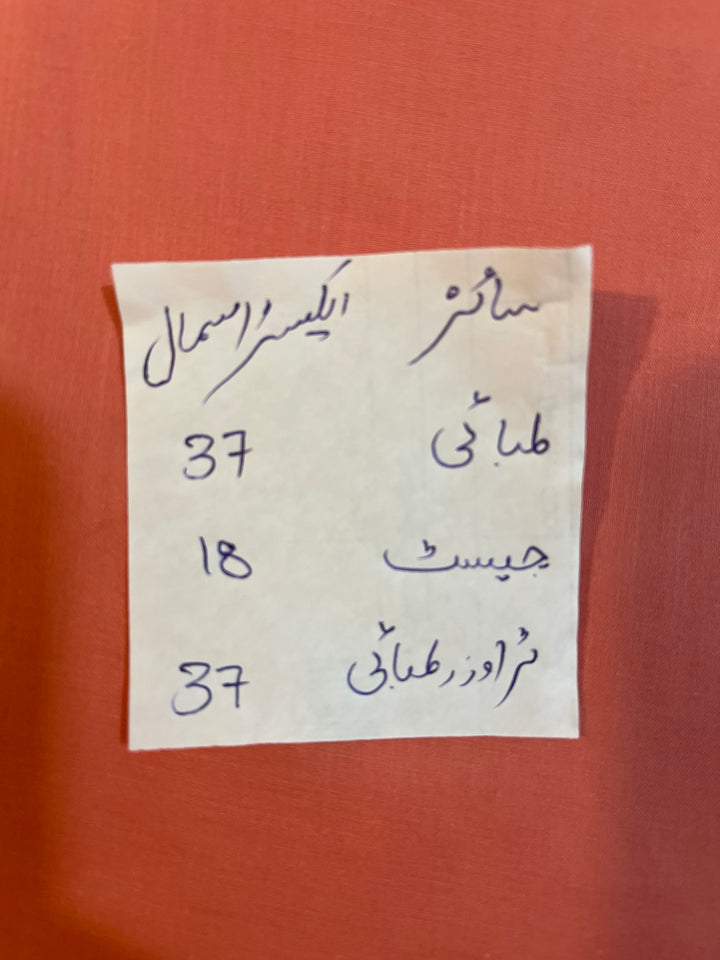 سائز ایکسٹرا سمال
لمبائی 37
چیسٹ 18
ٹراوزر لمبائی 37